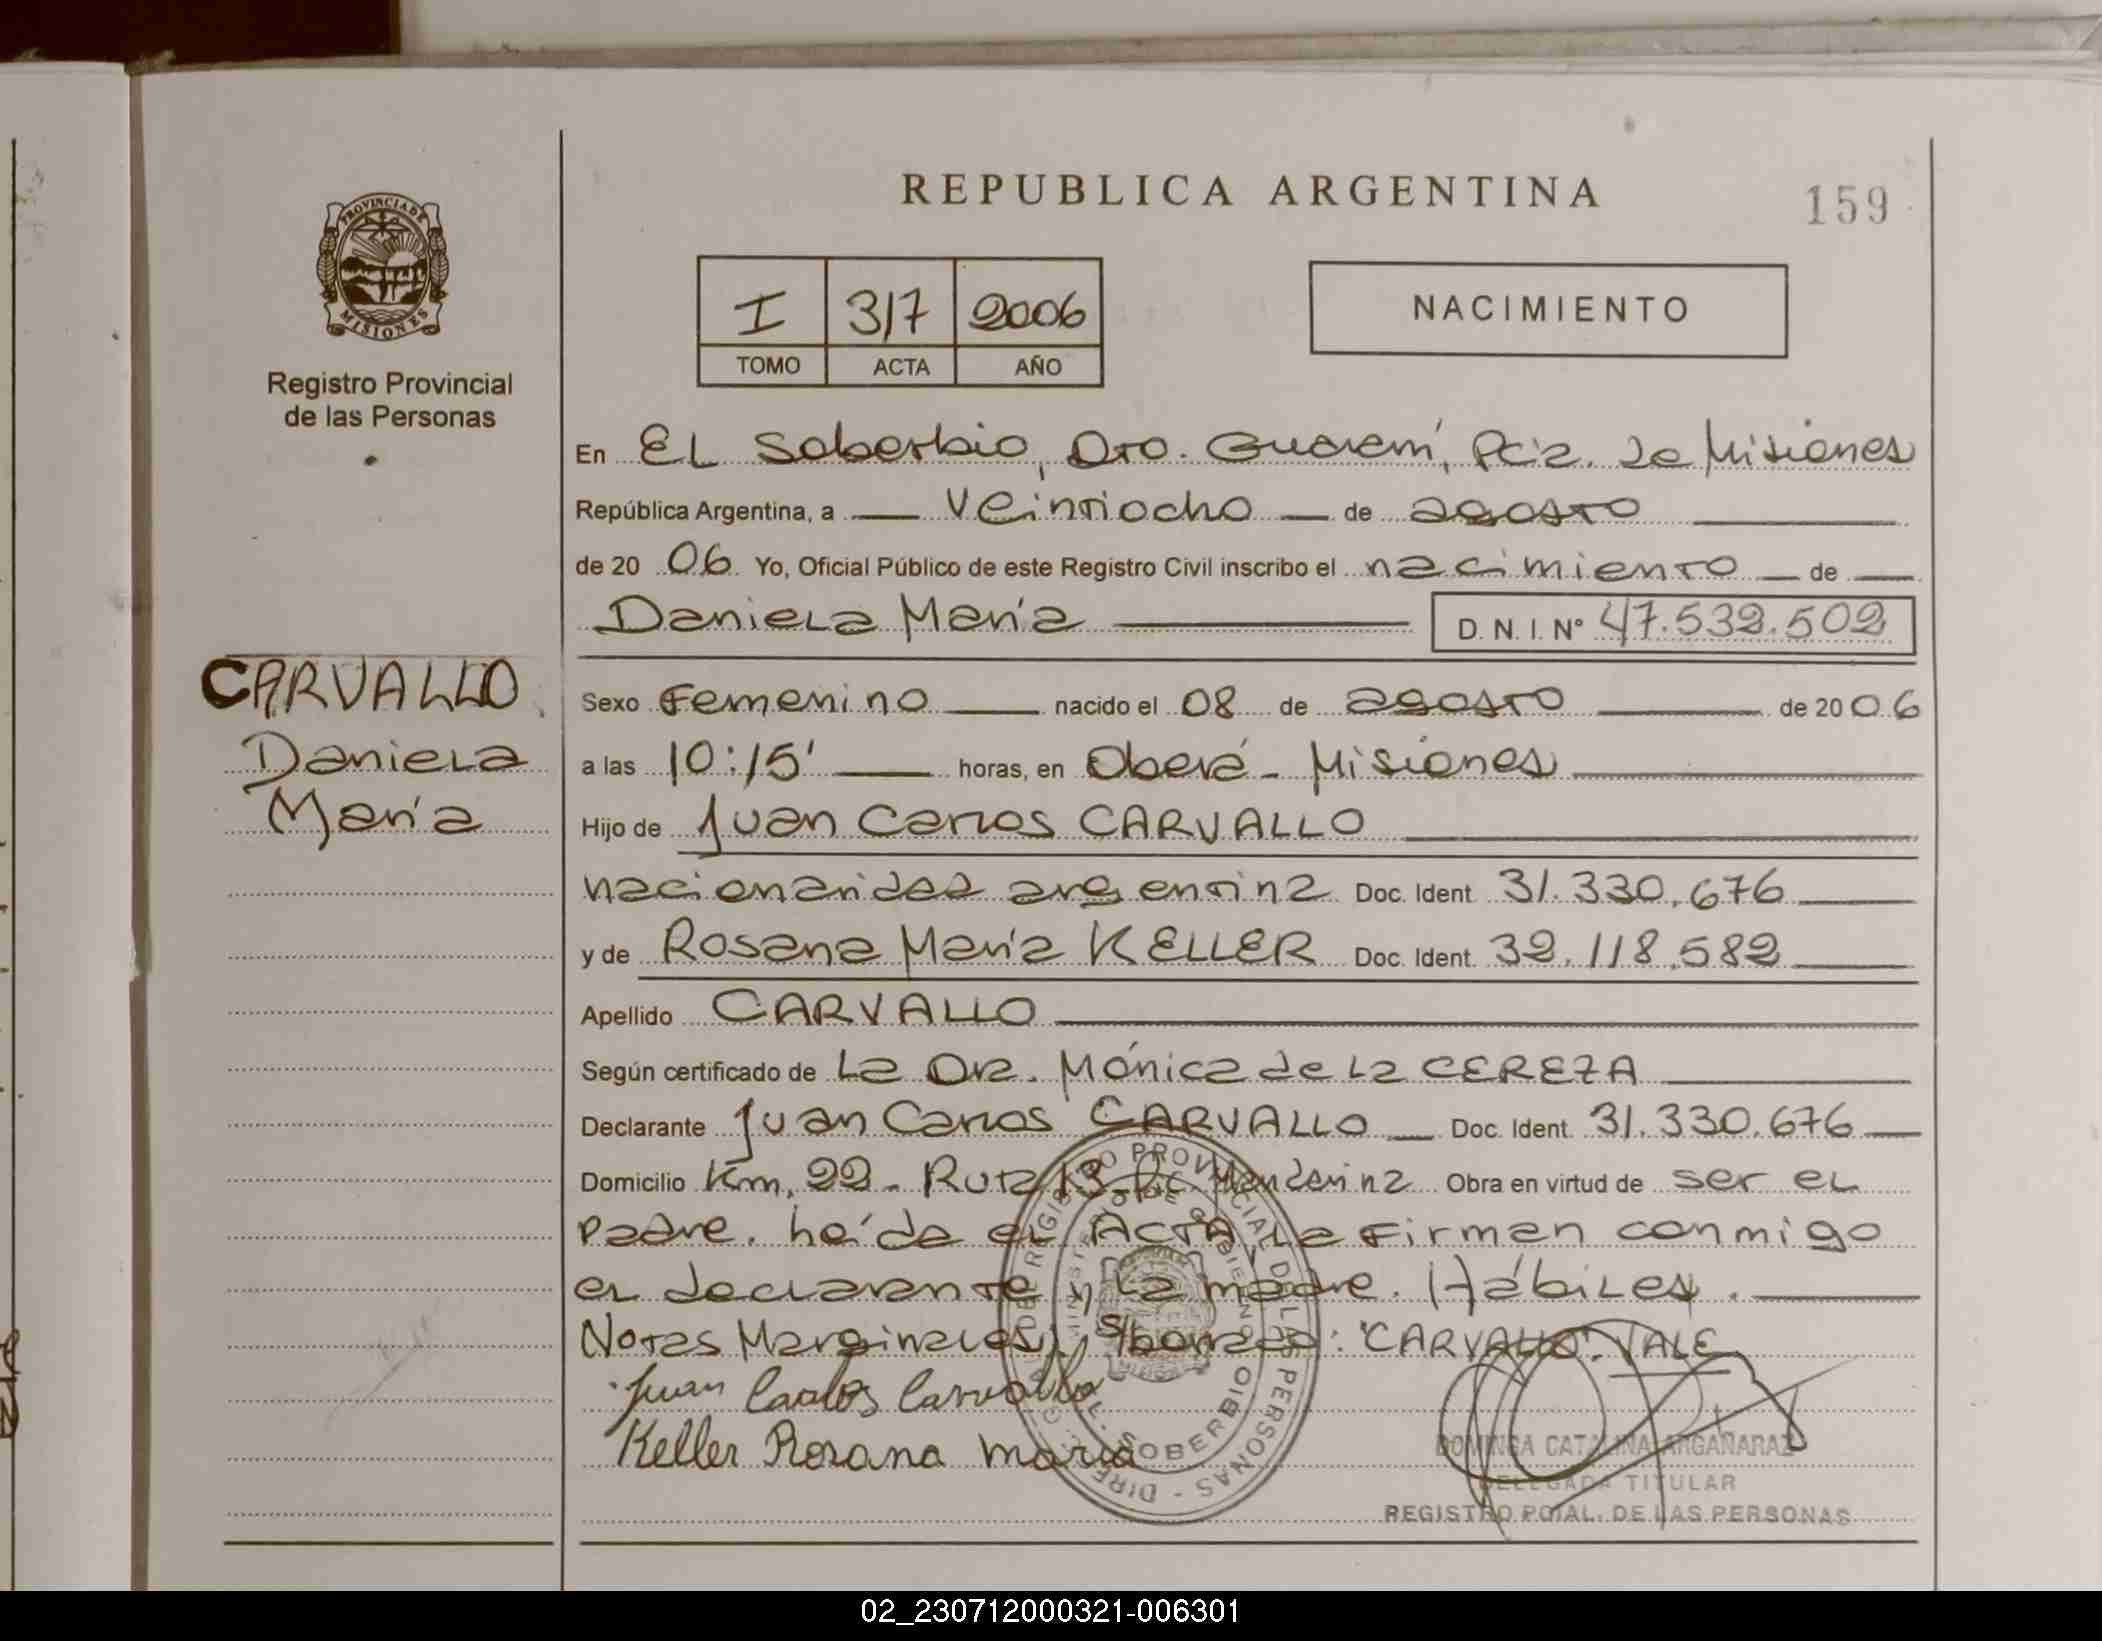 REPUBLICA ARGENTINA
159
PROVINCIA DE MISIONES
Registro Provincial
de las Personas
I 317 2006
TOMO ACTA AÑO
NACIMIENTO
En EL Soberbio, Dto. Guaraní, Pcia. de Misiones
República Argentina, a Veintiocho de agosto
de 20 06 Yo, Oficial Público de este Registro Civil inscribo el nacimiento de
Daniela María D. N. I. Nº 47.532.502
CARVALLO
Daniela
María
Sexo Femenino nacido el 08 de agosto de 20 06
a las 10:15' horas, en Oberá - Misiones
Hijo de Juan Carlos CARVALLO
nacionalidad argentina Doc. Ident. 31.330.676
y de Rosana María KELLER Doc. Ident. 32.118.582
Apellido CARVALLO
Según certificado de La Dra. Mónica de la CEREZA
Declarante Juan Carlos CARVALLO Doc. Ident. 31.330.676
Domicilio Km. 22 - Ruta 13 - Mandarina Obra en virtud de ser el
padre. Leída el ACTA, la firman conmigo
el declarante y la madre. Hábiles.
Notas Marginales: S/borrado: "CARVALLO". VALE
Juan Carlos Carvallo
Keller Rosana maria
DIRECC. GRAL. DEL REGISTRO PROVINCIAL DE LAS PERSONAS
MINISTERIO DE GOBIERNO
EL SOBERBIO
DOMINGA CATALINA ARGAÑARAZ
DELEGADA TITULAR
REGISTRO PCIAL. DE LAS PERSONAS
02_230712000321-006301